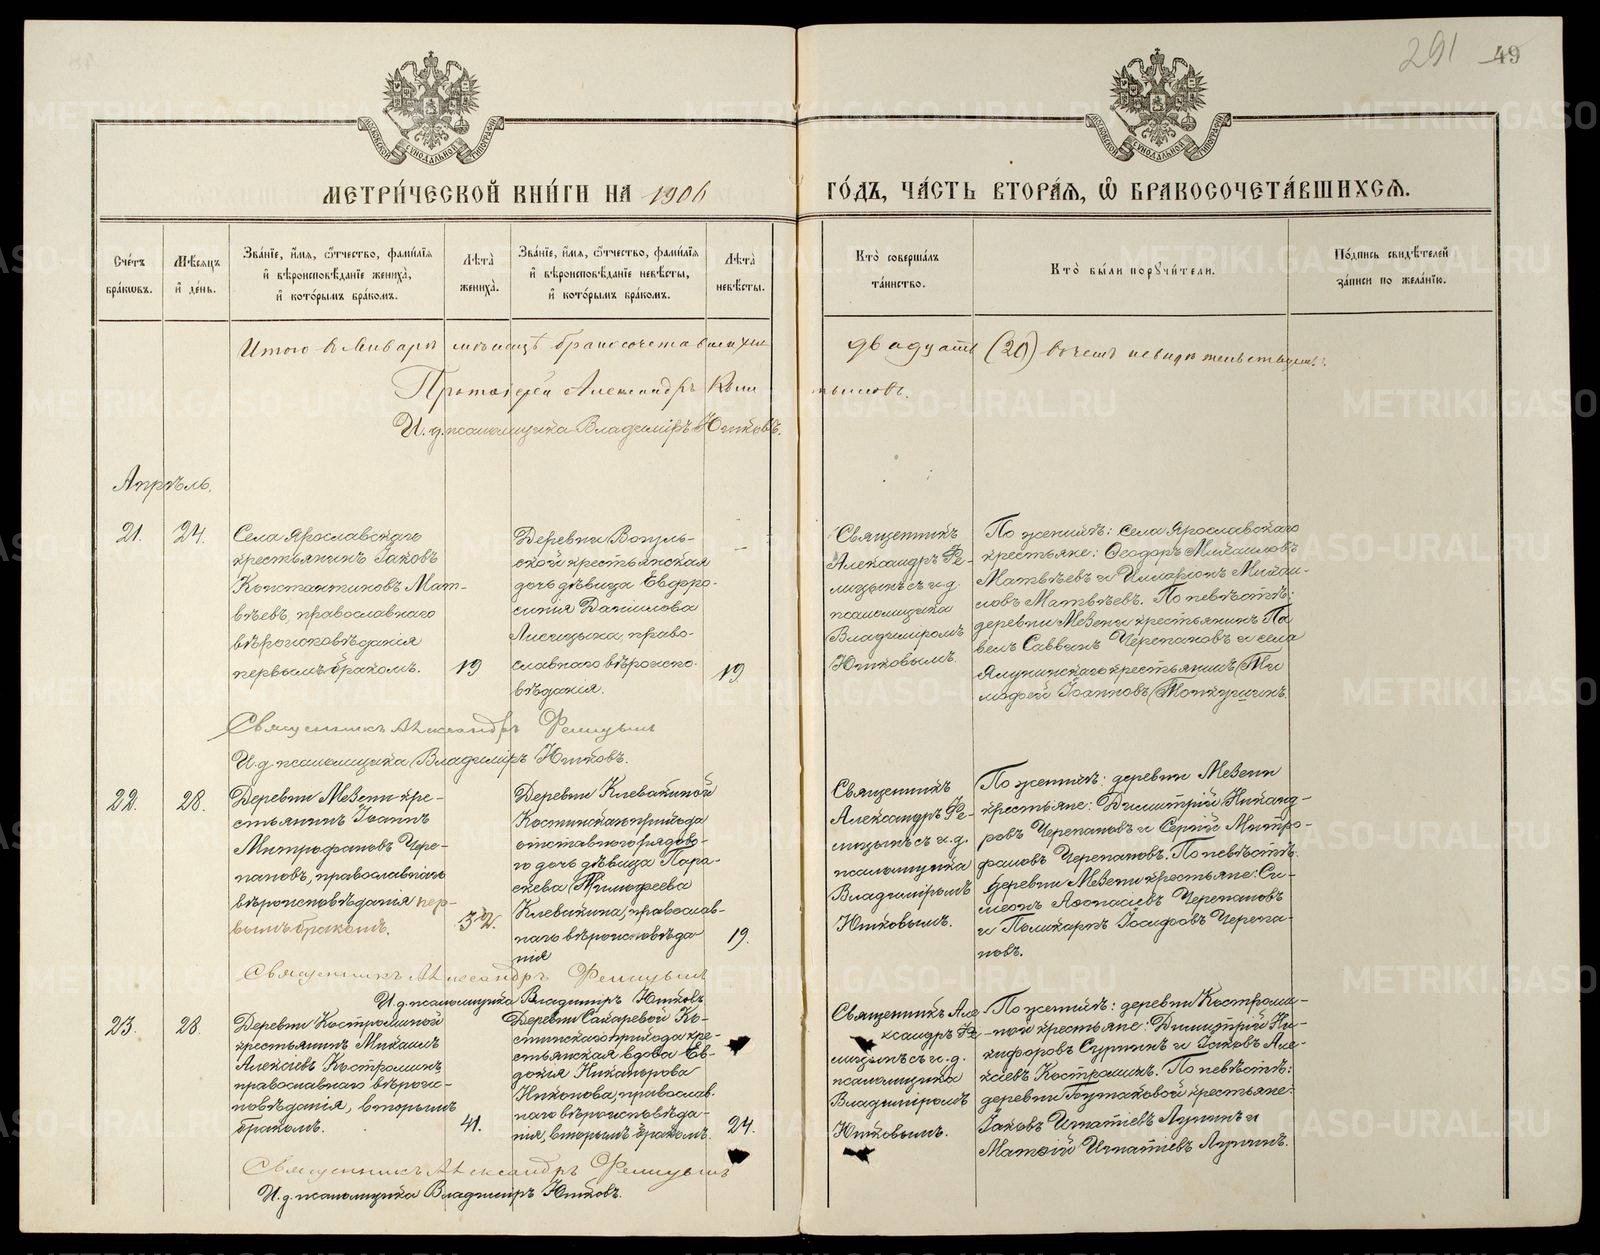 291 49
МОСКОВСКОЙ СѴНОДАЛЬНОЙ ТИПОГРАФІИ
МОСКОВСКОЙ СѴНОДАЛЬНОЙ ТИПОГРАФІИ
МЕТРИ́ЧЕСКОЙ КНИ́ГИ НА 1906 ГО́ДЪ, ЧА́СТЬ ВТОРА́Ѧ, Ѽ БРАКОСОЧЕТА́ВШИХСѦ.
Сче́тъ бра́кωвъ.
Мѣ́сяцъ и҆ де́нь.
Зва́нїе, и҆́мѧ, ѻ҆́тчество, фамил́їѧ
и҆ вѣроисповѣ́данїе жениха̀,
и҆ кото́рымъ бра́комъ.
Лѣта̀
жениха̀.
Зва́нїе, и҆́мѧ, ѻ҆́тчество, фами́лїѧ
и҆ вѣроисповѣ́данїе невѣ́сты,
и҆ кото́рымъ бра́комъ.
Лѣта̀
невѣ́сты.
Кто̀ соверша́лъ
та́инство.
Кто̀ бы́ли порꙋчи́тели.
По́дпись свидѣ́телей
за́писи по жела́нїю.
Итого въ Январѣ мѣсяцѣ бракосочетавшихся двадцать (20) въ чемъ и свидѣтельствуемъ:
Протоіерей Александръ
И. д. псаломщика Владиміръ Ютковъ.
Апрѣль.
21. 24.
Села Ярославскаго
крестьянинъ Іаковъ
Константиновъ Мат-
вѣевъ, православнаго
вѣроисповѣданія
первымъ бракомъ. 19
Деревни Вогуль-
ской крестьянская
дочь дѣвица Евфро-
синія Даніилова
Лисицына, право-
славнаго вѣроиспо-
вѣданія. 19
Священникъ
Александръ Фе-
лицынъ съ и. д.
псаломщика
Владиміромъ
Ютковымъ.
По женихѣ: села Ярославскаго
крестьяне: Ѳеодоръ Михаиловъ
Матвѣевъ и Илларіонъ Михаи-
ловъ Матвѣевъ. По невѣстѣ:
деревни Мезени крестьянинъ Па
велъ Саввинъ Черепановъ и села
Ялунинскаго крестьянинъ Ти
мофей Іоанновъ Топкушинъ.
Священникъ Александръ Фелицынъ
И. д. псаломщика Владиміръ Ютковъ.
22. 28.
Деревни Мезени кре-
стьянинъ Іоаннъ
Митрофановъ Чере-
пановъ, православнаго
вѣроисповѣданія пер-
вымъ бракомъ. 32.
Деревни Клевакиной
Костинскаго прихода
отставного рядово-
го дочь дѣвица Пара-
скева Тимофеева
Клевакина, православ-
наго вѣроисповѣда
нія 19.
Священникъ
Александръ Фе-
лицынъ съ и. д.
псаломщика
Владиміромъ
Ютковымъ.
По женихѣ: деревни Мезени
крестьяне: Димитрій Никанд-
ровъ Черепановъ и Сергій Митро-
фановъ Черепановъ. По невѣстѣ:
деревни Мезени крестьяне: Си-
меонъ Аѳонасьевъ Черепановъ
и Поликарпъ Іосифовъ Черепа-
новъ.
Священникъ Александръ Фелицынъ
И. д. псаломщика Владиміръ Ютковъ
23. 28.
Деревни Костроминой
крестьянинъ Михаилъ
Алексіевъ Костроминъ,
православнаго вѣроис-
повѣданія, вторымъ
бракомъ. 41.
Деревни Сохаревой Ко-
стинскаго прихода кре-
стьянская вдова Ев-
докія Никанорова
Никонова, православ-
наго вѣроисповѣда-
нія, вторымъ бракомъ. 24.
Священникъ Але
ксандръ Фе-
лицынъ съ и. д.
псаломщика
Владиміромъ
Ютковымъ.
По женихѣ: деревни Костроми-
ной крестьяне: Димитрій Ни-
кифоровъ Сурнинъ и Іаковъ Але-
ксіевъ Костроминъ. По невѣстѣ:
деревни Бучтаковой крестьяне:
Іаковъ Игнатіевъ Лупинъ и
Матѳій Игнатіевъ Лупинъ.
Священникъ Александръ Фелицынъ
И. д. псаломщика Владиміръ Ютковъ.
METRIKI.GASO-URAL.RU